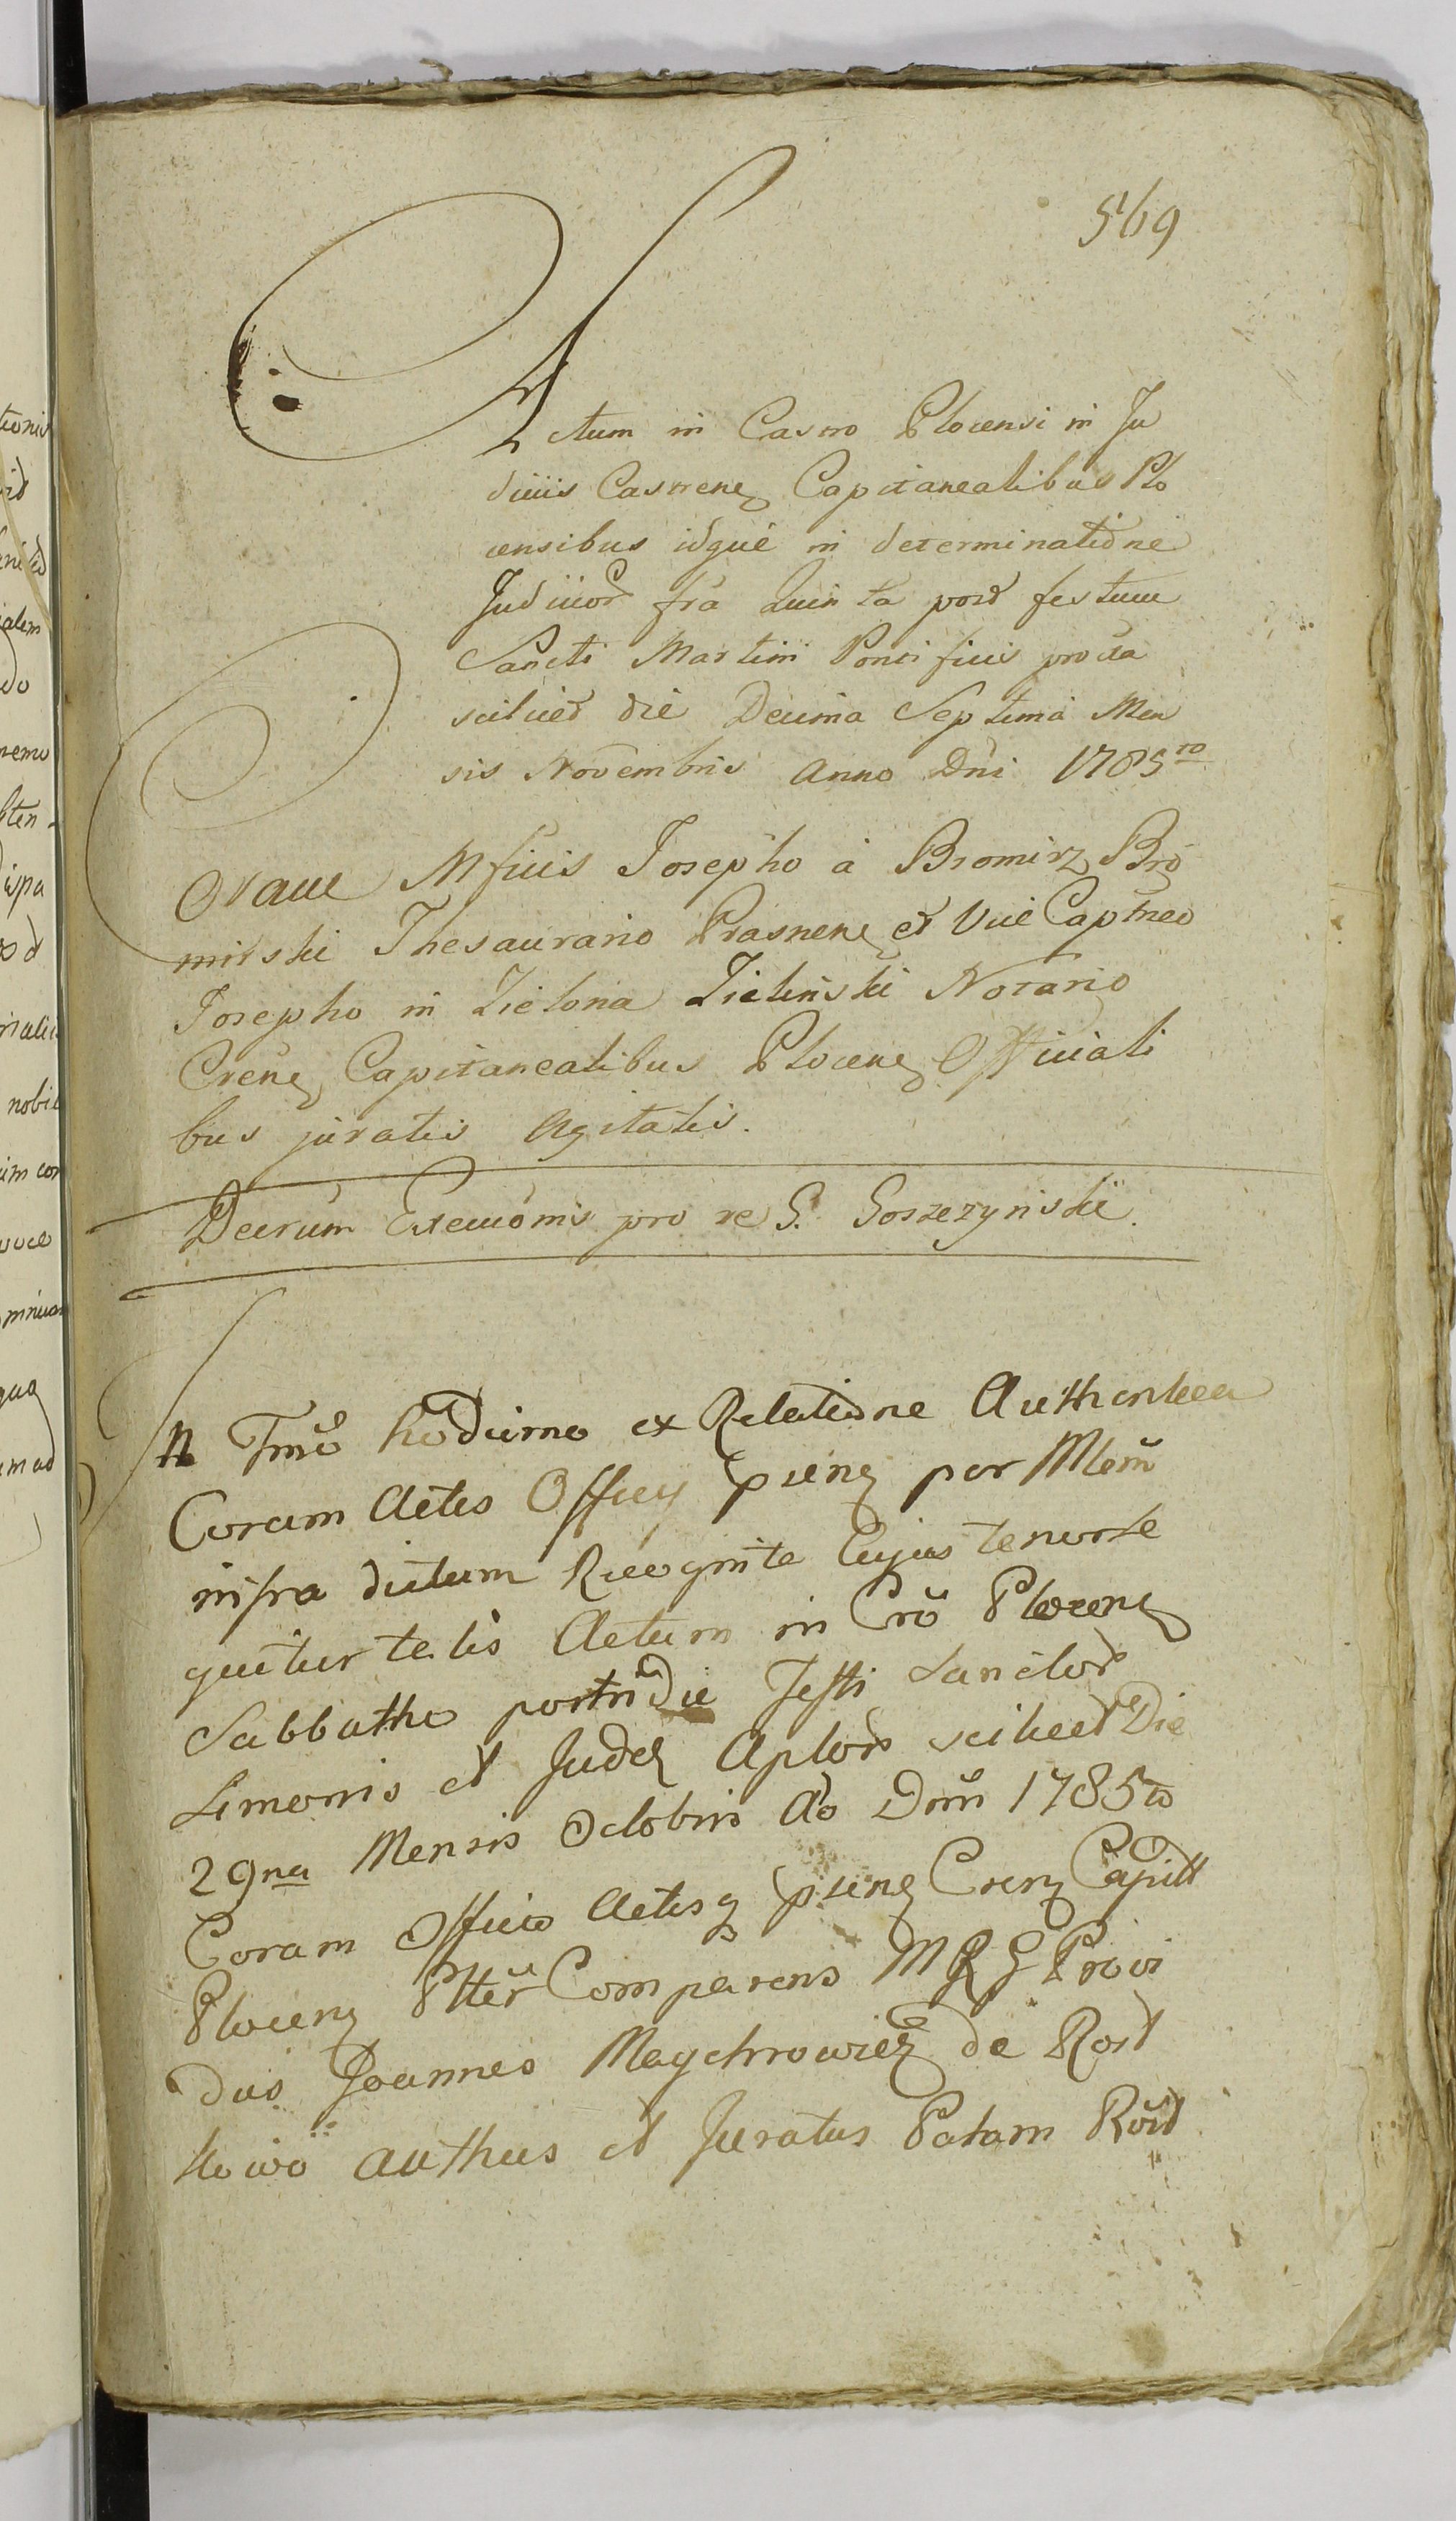 569
Actum in Castro Plocensi in Ju
diciis Castreng Capitanealibus Plo
censibus idque in determinatione
Judicior fra Quinta post festum
Sancti Martini Pontificis proxa
scilicet die Decima Septima Men
sis Novembris Anno Dni 1785to
Coram Mficis Josepho à Bromirz Bro
mirski Thesaurario Prasneng et Vice Captneo
Josepho in Zielona Zielinski Notario
Creng Capitanealibus Ploceng Officiali
bus juratis Agitatis.
Decrum Exemonis pro re G. Goszczynski.
In Tmo hodierno ex Relatione Authentica
Coram Actis Officy psieng per Mlem
infra dictum Recognita Cujus tenor se
quitur talis Actum in Cro Ploceng
Sabbatho postridie Festi Sanctor
Simonis et Judæ Aplor scilicet Die
29na Mensis Octobris Ao Dni 1785to
Coram Officio Actisq psieng Creng Capitt
Ploceng Plter Comparens M R G Provi
dus Joannes Maychrowicz de Rost
kowo authus et Juratus Palam Rost